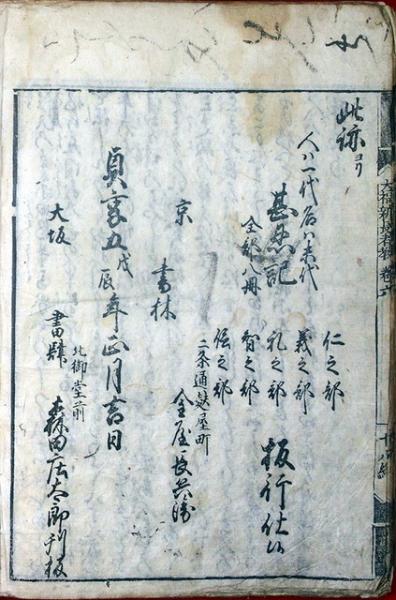 大福新長者教 巻六
此跡ヨリ
人ハ一代名ハ末代
甚忍記
全部八冊
仁之部
義之部
礼之部
智之部
信之部
板行仕候
京 書林
二条通麩屋町
金屋長兵衛
貞享五戊辰年正月吉日
大坂 書肆
北御堂前
森田庄太郎刊板